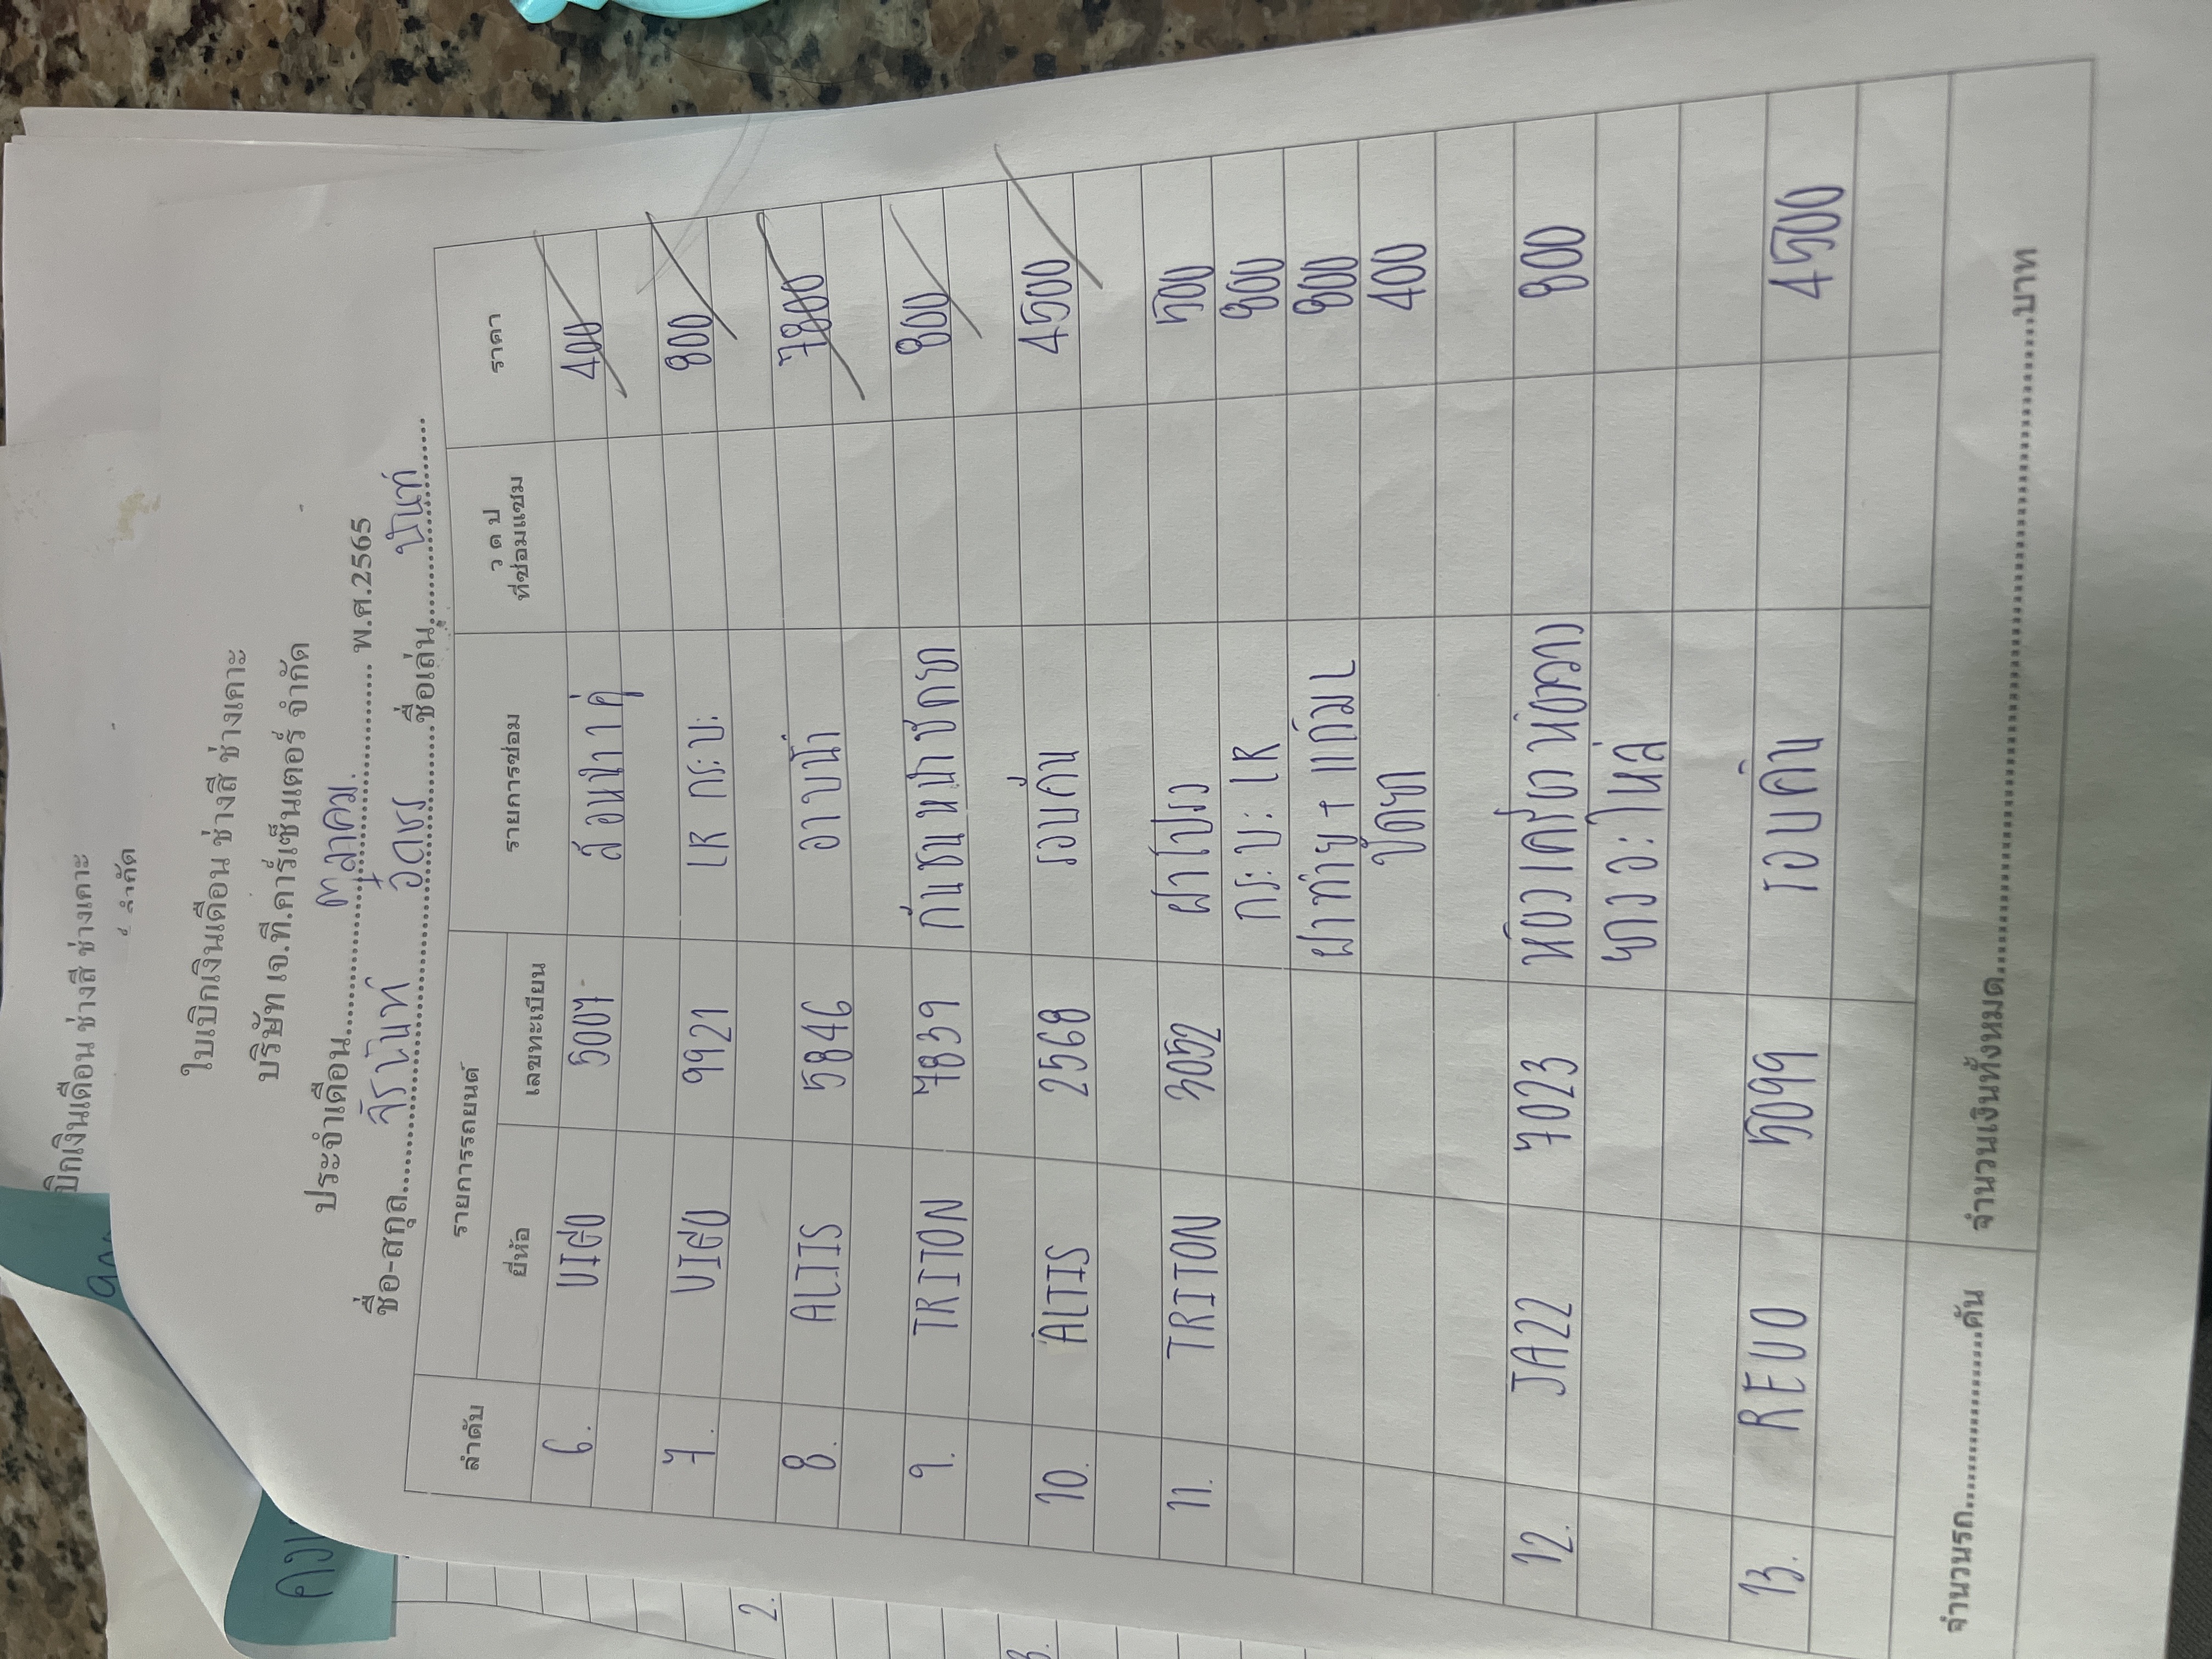 บิกเงินเดือน ช่างสี ช่างเคาะ
ใบเบิกเงินเดือน ช่างสี ช่างเคาะ
บริษัท เจ.ที.คาร์เซ็นเตอร์ จำกัด
ประจำเดือน ตุลาคม. พ.ศ.2565
ชื่อ-สกุล ชื่อเล่น
ลำดับ รายการรถยนต์ รายการซ่อม ว ด ป ที่ซ่อมแซม ราคา
ยี่ห้อ เลขทะเบียน
6. VIGO 5007 400
7. VIGO 9921 LR กระบะ 800
8. ALTIS 5846 อาบน้ำ 7800
9. TRITON 7839 กันชนหน้า 800
10. ALTIS 2568 รอบคัน 4500
11. TRITON 3052 500
กระบะ LR 800
ฝาท้าย + แก้ม L 800
400
12. JAZZ 7023 800
13. REVO 5099 รอบคัน 4500
จำนวนรถ คัน จำนวนเงินทั้งหมด บาท
2.